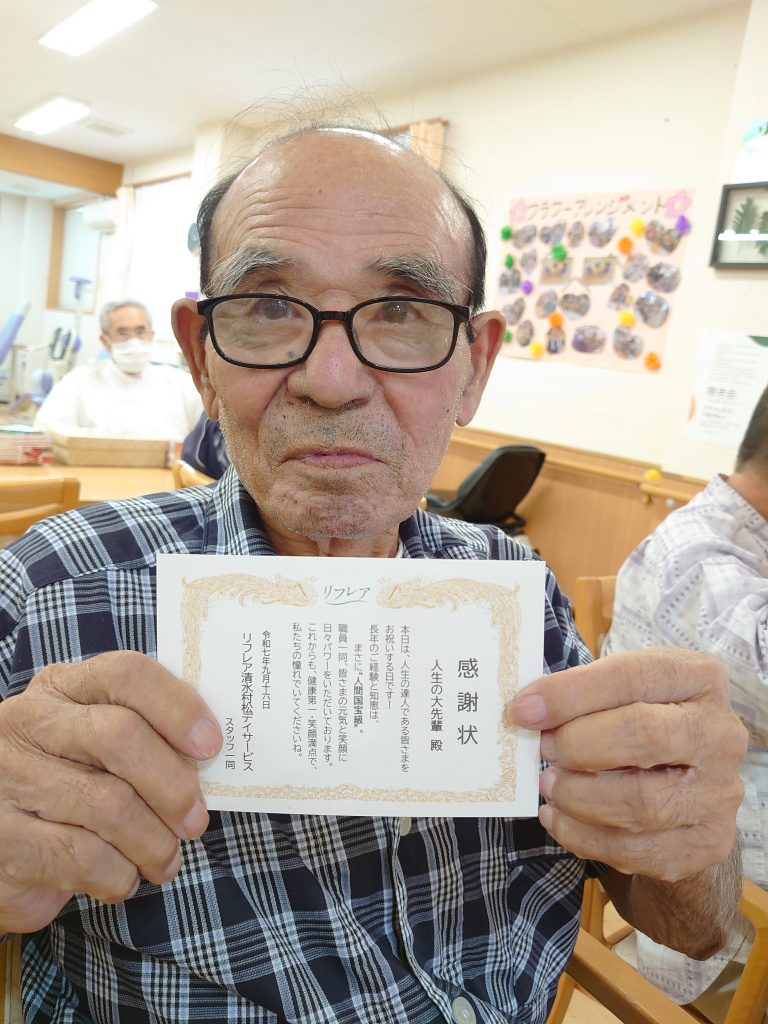 フラワーアレンジメント
敬老会
リフレア
感謝状
人生の大先輩 殿
本日は、人生の達人である皆さまを
お祝いする日ですー
長年のご経験と知恵は、
まさに"人間国宝級"。
職員一同、皆さまの元気と笑顔に
日々パワーをいただいております。
これからも、健康第一・笑顔満点で、
私たちの憧れでいてくださいね。
令和七年九月十六日
リフレア清水村松デイサービス
スタッフ一同